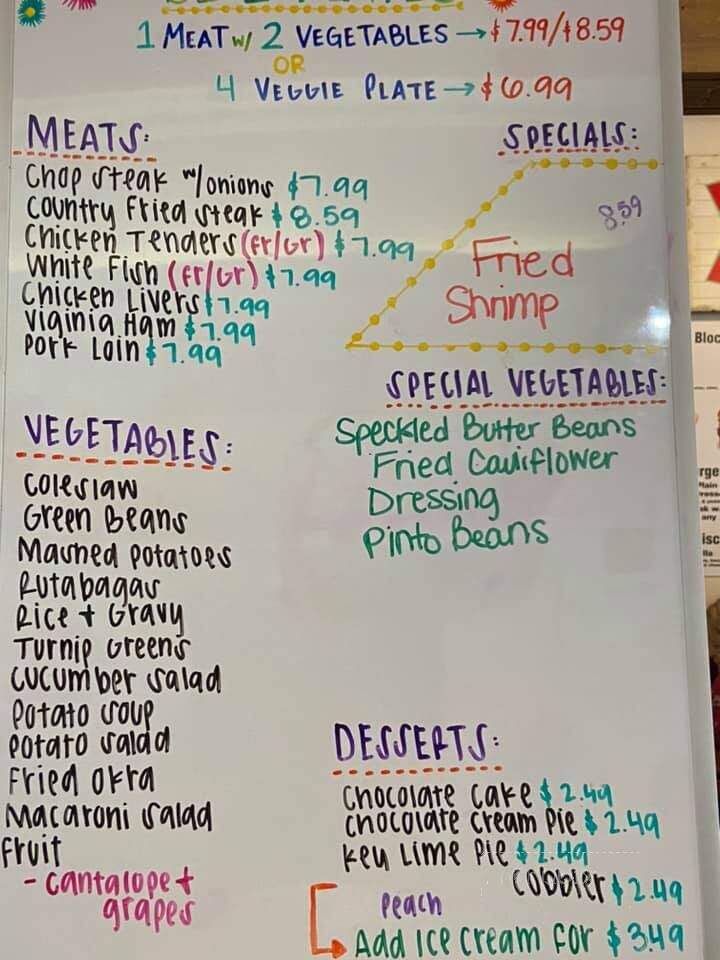 1 MEAT w/ 2 VEGETABLES → $7.99/$8.59
OR
4 VEGGIE PLATE → $6.99
MEATS:
Chop Steak w/onions $7.99
Country Fried Steak $8.59
Chicken Tenders (Fr/Gr) $7.99
White Fish (Fr/Gr) $7.99
Chicken Livers $7.99
Viginia Ham $7.99
Pork Loin $7.99
SPECIALS:
8.59
Fried
Shrimp
SPECIAL VEGETABLES:
Speckled Butter Beans
Fried Cauiflower
Dressing
Pinto Beans
VEGETABLES:
Coleslaw
Green Beans
Mashed Potatoes
Rutabagas
Rice + Gravy
Turnip Greens
Cucumber Salad
Potato Soup
Potato Salad
Fried Okra
Macaroni Salad
Fruit
- Cantalope +
grapes
DESSERTS:
Chocolate Cake $2.49
Chocolate Cream Pie $2.49
Key Lime Pie $2.49
Cobbler $2.49
Peach
Add Ice Cream for $3.49